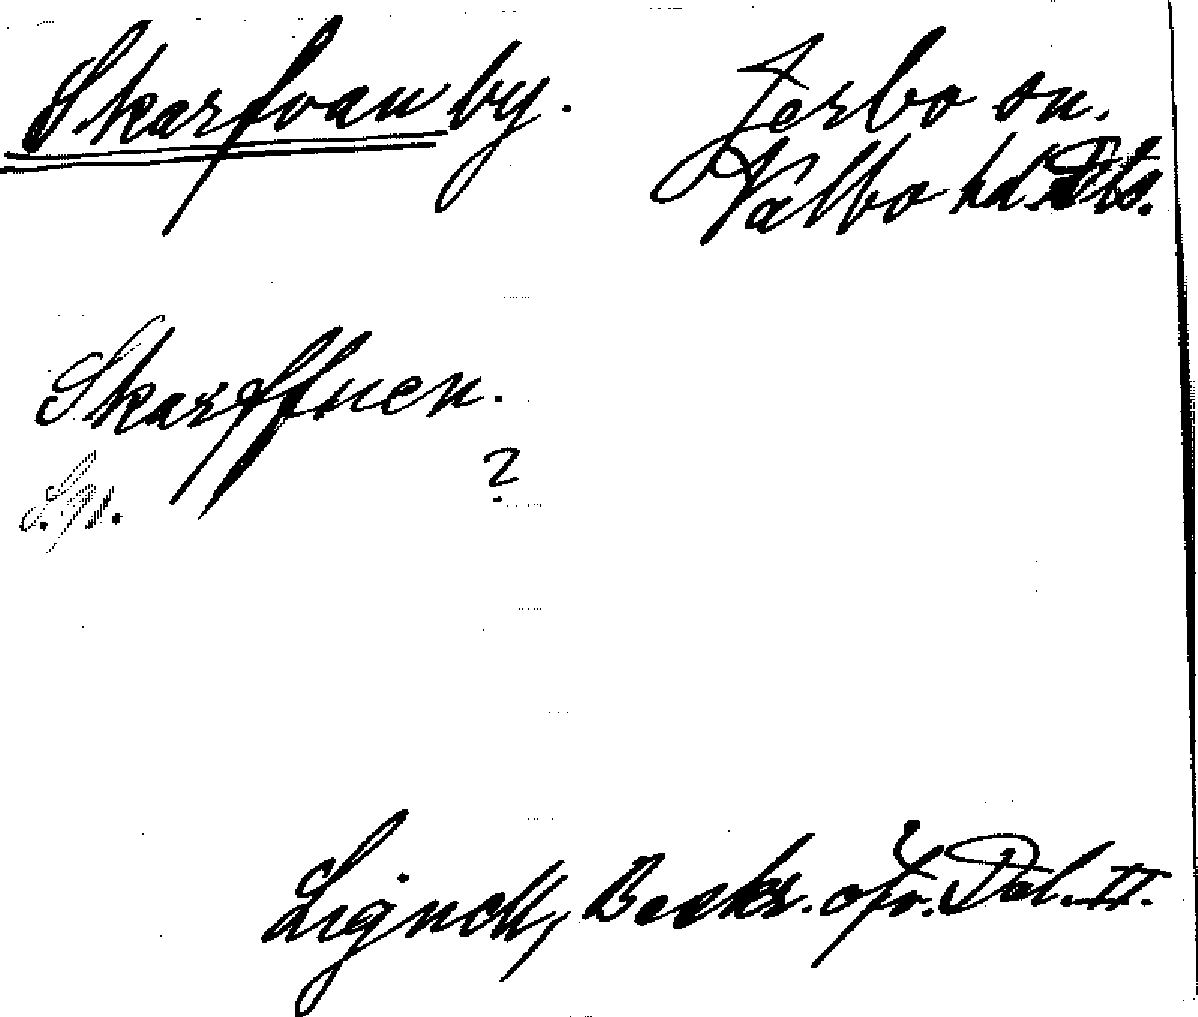 Skarfvan by.
Ferbo sn.
Valbo hd. Dls.
Skarffuen.
?
Lignell, Beskr. öfv. Dal. II.